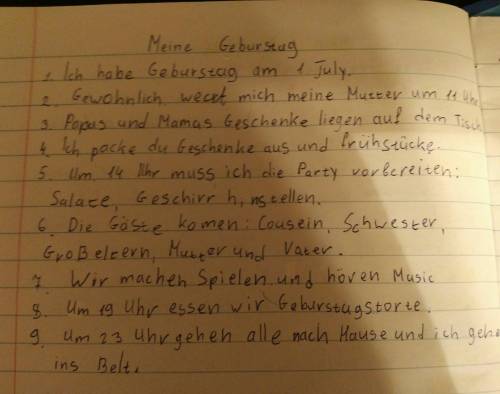 Meine Geburstag
1. Ich habe Geburstag am 1 July.
2. Gewohnlich weckt mich meine Mutter um 11 Uhr
3. Papas und Mamas Geschenke liegen auf dem Tisch
4. Ich packe du Geschenke aus und frühstücke.
5. Um 14 Uhr muss ich die Party vorbereiten:
Salate, Geschirr hinstellen.
6. Die Gäste komen: Cousein, Schwester,
Großeltern, Mutter und Vater.
7. Wir machen Spielen und hören Music
8. Um 19 Uhr essen wir Geburstagstorte.
9. Um 23 Uhr gehen alle nach Hause und ich gehe
ins Belt.